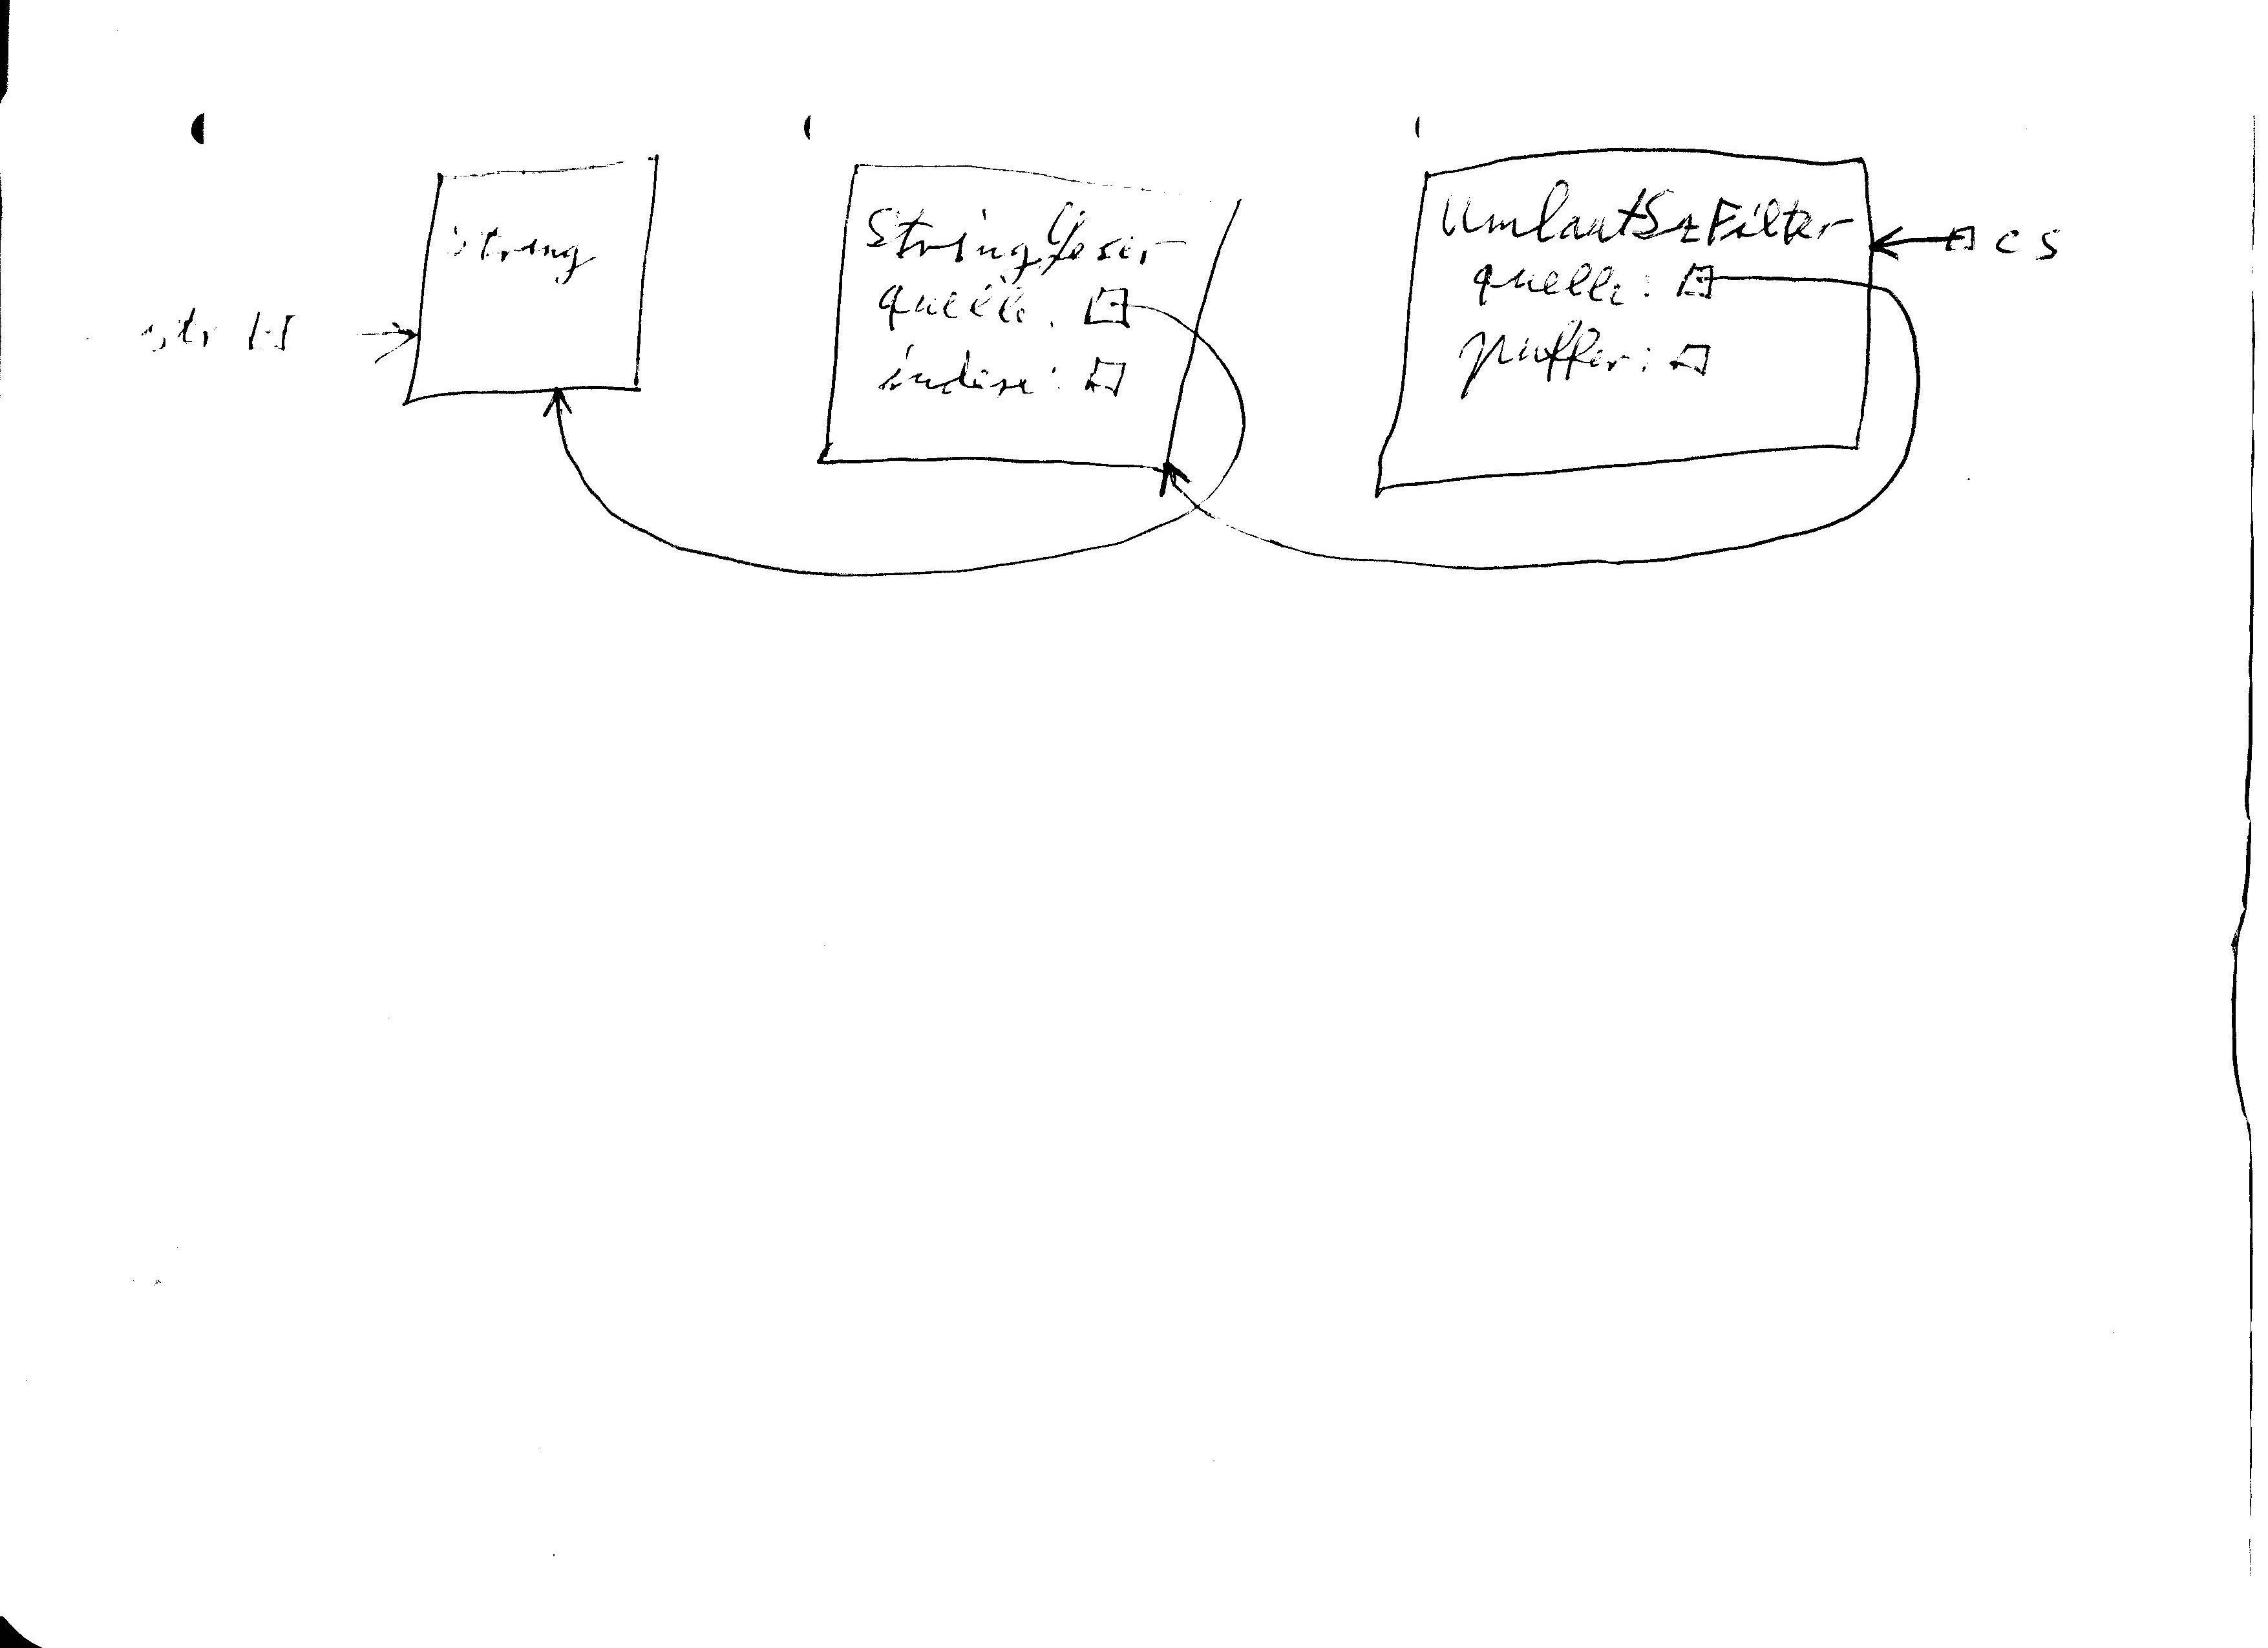 String
str
StringLeser
quelle:
index:
UmlautSzFilter
quelle:
puffer:
cs